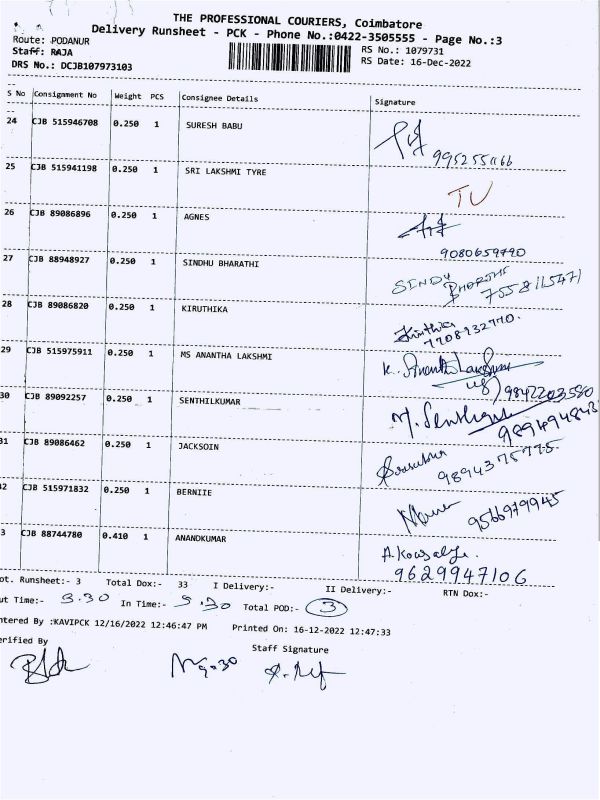 THE PROFESSIONAL COURIERS, Coimbatore
Delivery Runsheet - PCK - Phone No.:0422-3505555 - Page No.:3
Route: PODANUR
RS No.: 1079731
Staff: RAJA
RS Date: 16-Dec-2022
DRS No.: DCJB107973103
S No Consignment No Weight PCS Consignee Details Signature
24 CJB 515946708 0.250 1 SURESH BABU
9952551166
25 CJB 515941198 0.250 1 SRI LAKSHMI TYRE
TU
26 CJB 89086896 0.250 1 AGNES
9080659790
27 CJB 88948927 0.250 1 SINDHU BHARATHI
SINDU
7558115471
28 CJB 89086820 0.250 1 KIRUTHIKA
7708932770.
29 CJB 515975911 0.250 1 MS ANANTHA LAKSHMI
K. Anantha Lakshmi
9842203580
30 CJB 89092257 0.250 1 SENTHILKUMAR
M. Senthil
31 CJB 89086462 0.250 1 JACKSOIN
9894375775.
32 CJB 515971832 0.250 1 BERNIIE
9566979945
3 CJB 88744780 0.410 1 ANANDKUMAR
A. Kowsalya.
9629947106
ot. Runsheet:- 3 Total Dox:- 33 I Delivery:- II Delivery:- RTN Dox:-
ut Time:- 3.30 In Time:- 5.30 Total POD:- 3
ntered By :KAVIPCK 12/16/2022 12:46:47 PM Printed On: 16-12-2022 12:47:33
erified By
Staff Signature